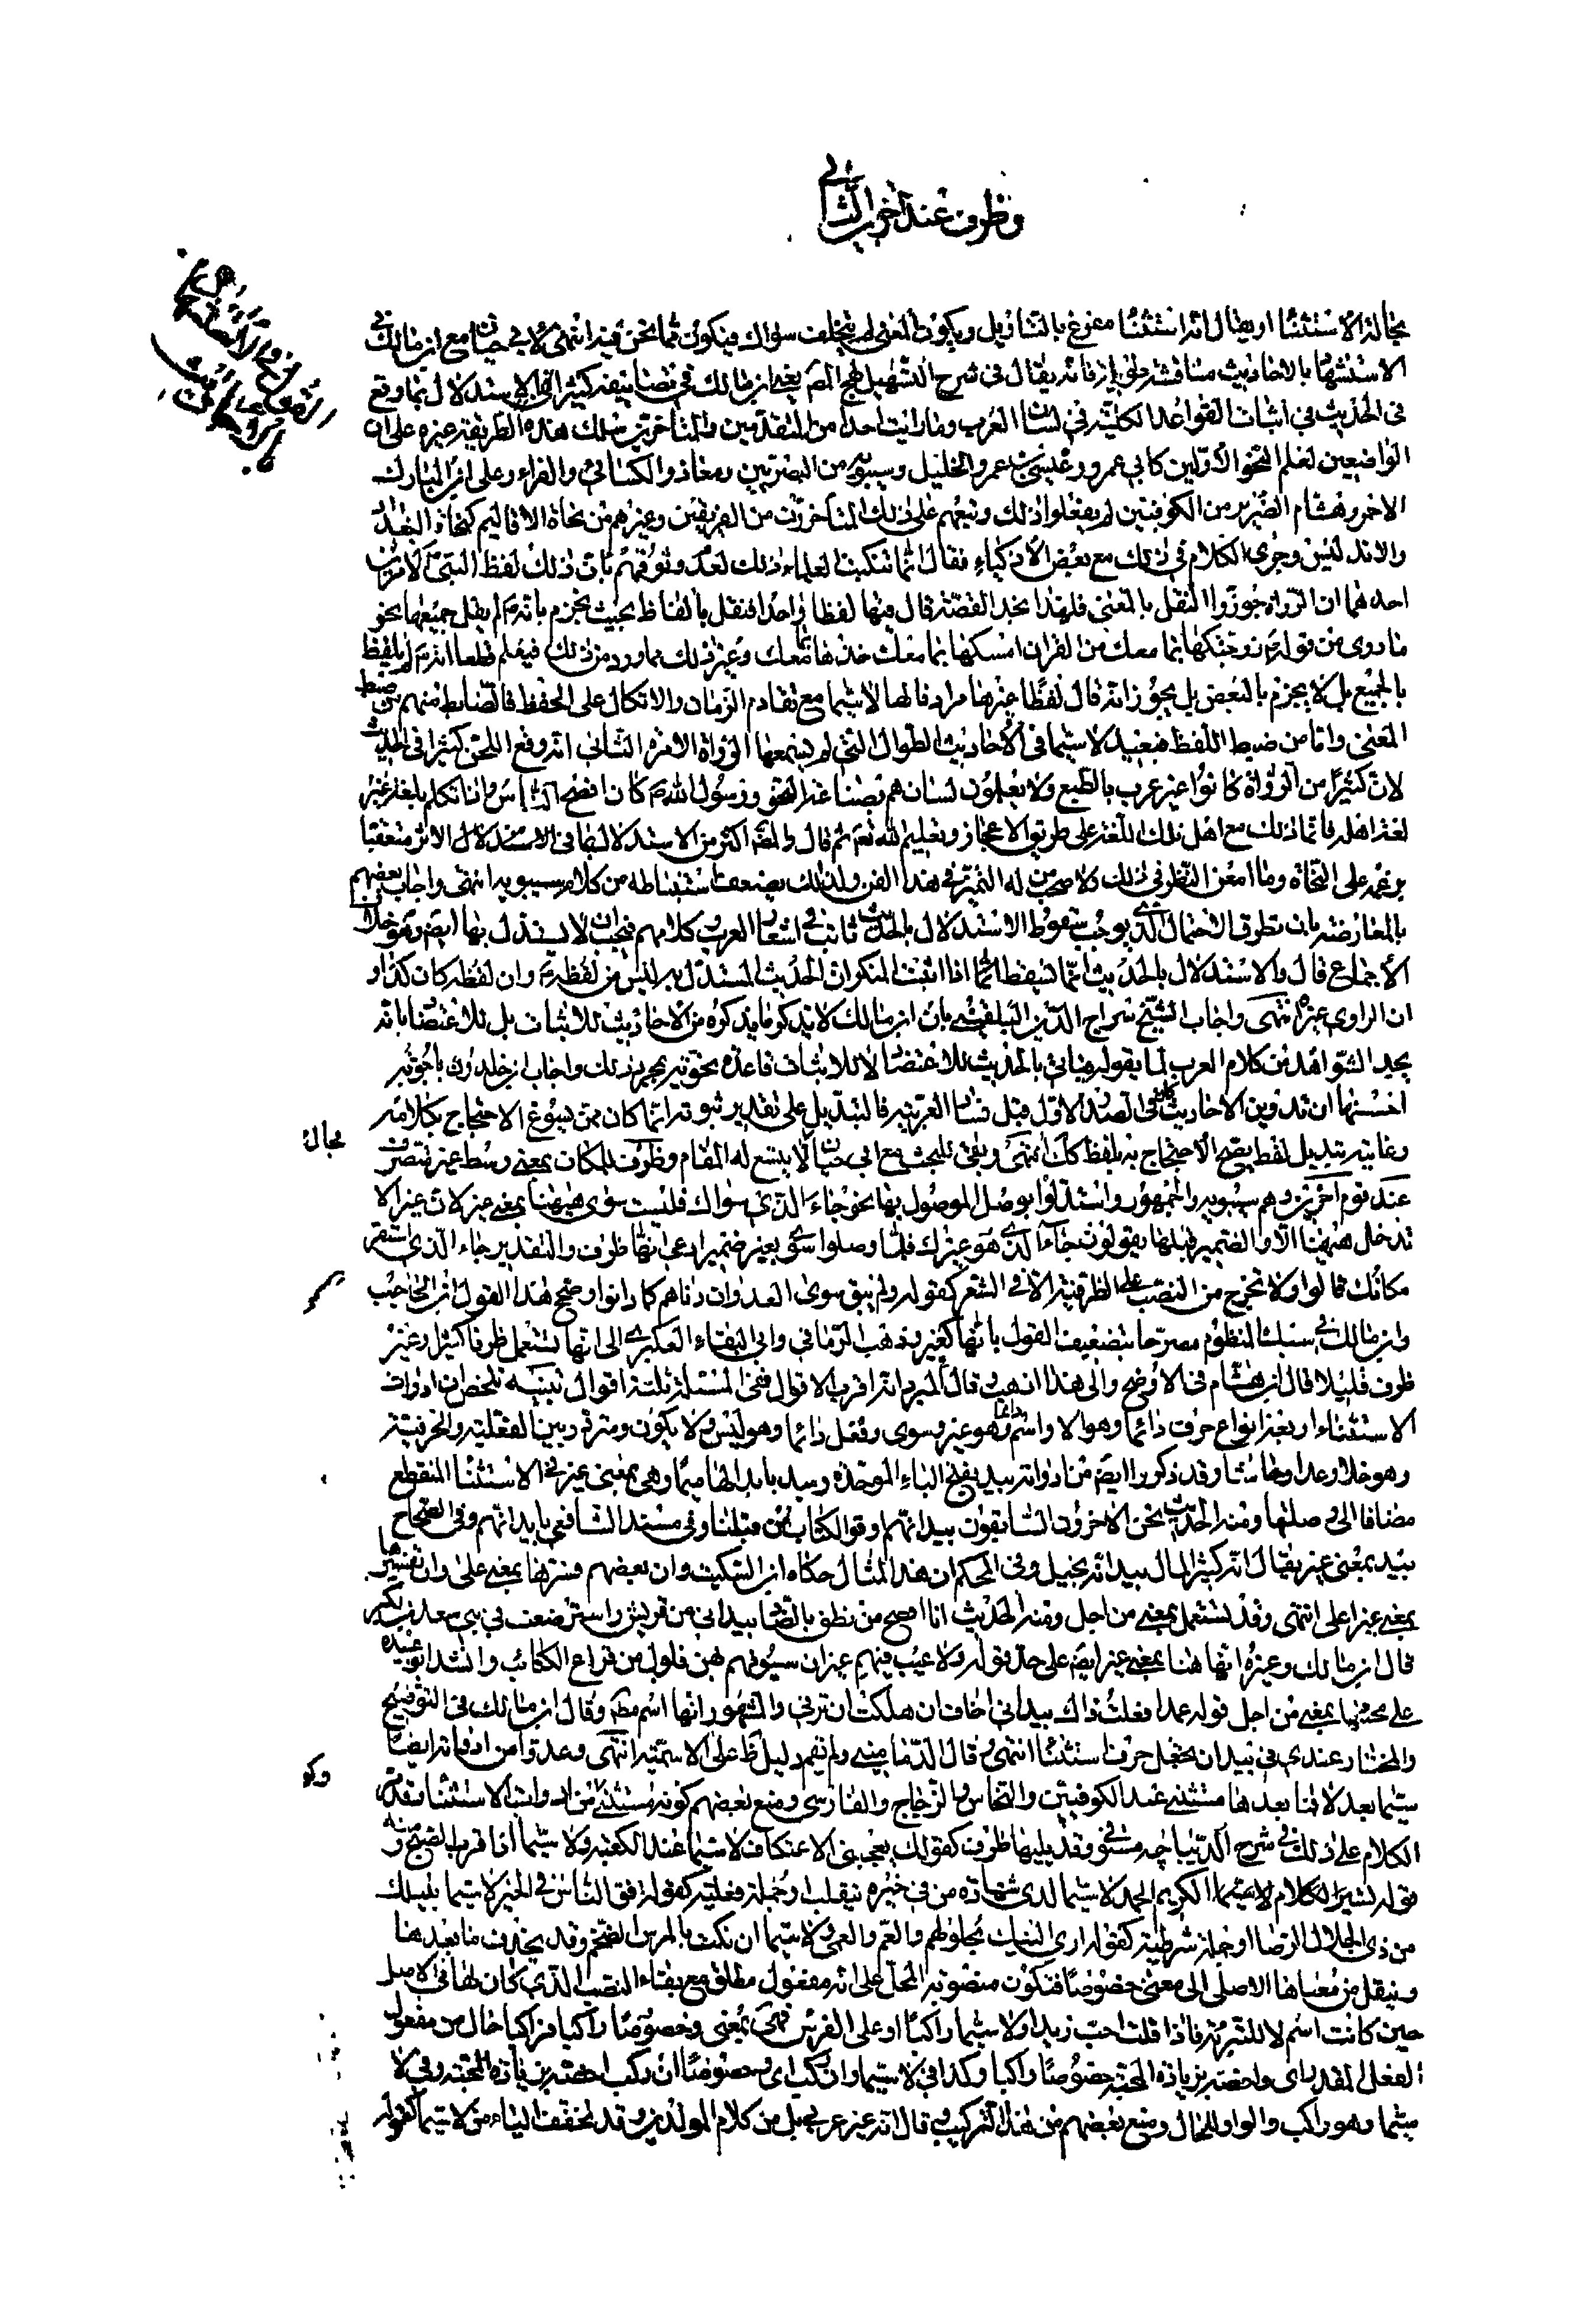 وظرف عند آخرين الثاني
بحالة الاستثناء او يقال انه استثناء مفرغ بالتاويل ويكون المعنى لم يتخلف سواك فيكون مما نحن فيه انتهى ولابي حيان مع ابن مالك في
الاستشهاد بالاحاديث مناقشة فانه يقال في شرح التسهيل لهج المصـ يعني ابن مالك في تصانيفه كثيرا بالاستدلال بما وقع
في الحديث في اثبات القواعد الكلية في لسان العرب وما رايت احدا من المتقدمين والمتاخرين سلك هذه الطريقة غيره على ان
الواضعين لعلم النحو الاولين كابي عمرو وعيسى بن عمر والخليل وسيبويه من البصريين ومعاذ والكسائي والفراء وعلي بن المبارك
الاحمر وهشام الضرير من الكوفيين لم يفعلوا ذلك وتبعهم على ذلك المتاخرون من الفريقين وغيرهم من نحاة الاقاليم كنحاة البغداد
والاندلس وجرى الكلام في ذلك مع بعض الاذكياء فقال انما تنكبت العلماء ذلك لعدم وثوقهم بان ذلك لفظ النبي ص لامرين
احدهما ان الرواة جوزوا النقل بالمعنى فلهذا نجد القصة قال فيها لفظا واحدا فنقل بالفاظ بحيث نجزم بانه ص لم يقل جميعها نحو
ما روى من قوله ص زوجتكها بما معك من القران امسكها بما معك خذها بما معك وغير ذلك مما ورد من ذلك فيعلم قطعا انه ص لم يلفظ
بالجميع بل لا يجزم بالبعض بل يجوز انه قال لفظا غيرها مرادفا لها لا سيما مع تقادم الزمان والاتكال على الحفظ فالضابط منهم من ضبط
المعنى واما من ضبط اللفظ فبعيد لا سيما في الاحاديث الطوال التي لم يسمعها الرواة الا مرة الثاني انه وقع اللحن كثيرا في الحديث
لان كثيرا من الرواة كانوا غير عرب بالطبع ولا يعلمون لسانهم بصناعة النحو ورسول الله ص كان افصح الناس واذا تكلم بلغة غير
لغة اهله فانما ذلك مع اهل تلك اللغة على طريق الاعجاز وتعليم الله تعـ ثم قال والمصـ اكثر من الاستدلال بما في الاثر متعقبا
بزعمه على النحاة وما امعن النظر في ذلك ولا صحب من له التميز في هذا الفن ولذلك يضعف استنباطه من كلام سيبويه انتهى واجاب بعضهم
بالمعارضة بان تطرق الاحتمال الذي يوجب سقوط الاستدلال بالحديث ثابت في اشعار العرب وكلامهم فيجب ان لا يستدل بها ايضـ وهو خلاف
الاجماع قال والاستدلال بالحديث انما يسقط اذا اثبت المنكر ان الحديث المستدل به ليس من لفظه ص وان لفظه كان كذا و
ان الراوي غيره انتهى واجاب الشيخ سراج الدين البلقيني بان ابن مالك لا يذكر ما يذكره من الاحاديث للاثبات بل للاعتضاد بانه
يجد الشواهد من كلام العرب لما يقوله فياتي بالحديث للاعتضاد لا لاثبات قاعدة نحوية بمجرد ذلك واجاب ابن خلدون باجوبة
احسنها ان تدوين الاحاديث كان في الصدر الاول قبل فساد العربية فالتبديل على تقدير ثبوته انما كان ممن يسوغ الاحتجاج بكلامه
وغايته تبديل لفظ يصح الاحتجاج به بلفظ كك انتهى وبقي للبحث مع ابي حيان لا يتسع له المقام وظرف للمكان بمعنى وسط غير متصرف
عند قوم آخرين وهم سيبويه والجمهور واستدلوا بوصل الموصول بها نحو جاء الذي سواك فليست سوى هيهنا بمعنى غير لان غير لا
تدخل هيهنا الا والضمير قبلها يقولون جاء الذي هو غيرك فلما وصلوا سوى بغير ضمير ادعى انها ظرف والتقدير جاء الذي استقر
مكانك قالوا ولا تخرج من النصب على الظرفية الا في الشعر كقوله ولم يبق سوى العدوان دناهم كما دانوا وصحح هذا القول ابن الحاجب
وابن مالك في سبك المنظوم مصرحا بتضعيف القول بانها كغير وذهب الرماني وابي البقاء العكبري الى انها تستعمل ظرفا كثيرا وغير
ظرف قليلا قال ابن هشام في الاوضح والى هذا اذهب وقال المبرد انه اقرب الاقوال ففي المسئلة ثلثة اقوال تنبيه تلخص ان ادوات
الاستثناء اربعة انواع حرف دائما وهو الا واسم دائما وهو غير وسوى وفعل دائما وهو ليس ولا يكون ومتردد بين الفعلية والحرفية
وهو خلا وعدا وحاشا وقد ذكروا ايضـ من ادواته بيد بفتح الباء الموحدة وميد بابدالها ميما وهي بمعنى غير في الاستثناء المنقطع
مضافا الى وصلتها ومنه الحديث نحن الاخرون السابقون بيد انهم اوتوا الكتاب من قبلنا وفي مسند الشافعي بايد انهم وفي الصحاح
بيد بمعنى غير يقال انه كثير المال بيد انه بخيل وفي المحكم ان هذا المثال حكاه ابن السكيت وان بعضهم فسرها بمعنى على وان تفسيرها
بمعنى غير اعلى انتهى وقد تستعمل بمعنى من اجل ومنه الحديث انا افصح من نطق بالضاد بيد اني من قريش واسترضعت في بني سعد بن بكر
قال ابن مالك وغيره انها هنا بمعنى غير ايضـ على حد قوله ولا عيب فيهم غير ان سيوفهم بهن فلول من قراع الكتائب وانشد ابو عبيده
على مجيئها بمعنى من اجل قوله عمدا فعلت ذاك بيد اني اخاف ان هلكت ان ترني والمشهور انها اسم مطـ وقال ابن مالك في التوضيح
والمختار عندي في بيد ان يجعل حرف استثناء انتهى وقال الدماميني ولم يقم دليل ظ على الاسمية انتهى وعدوا من ادواته ايضا
سيما بعد لا فما بعدها مستثنى عند الكوفيين والنحاس والزجاج والفارسي ومنع بعضهم كونه مستثنى من ادوات الاستثناء وقد مر
الكلام على ذلك في شرح الديباجه مستوفى وقد يليها ظرف كقولك يعجبني الاعتكاف لا سيما عند الكعبة ولا سيما اذا قرب الصبح ومنه
قوله يسر الكلام لا سيما الكريم الحمد لا سيما لدى شهادة من في خيره يتقلب وجملة فعلية كقوله فق الناس في الخير لا سيما ينيلك
من ذي الجلال الرضا او جملة شرطية كقوله ارى النيك يجلو الهم والغم والعمى ولا سيما ان نكت بالمرس الضخم وقد يحذف ما بعدها
وينقل من معناها الاصلي الى معنى خصوصا فتكون منصوبة المحل على انه مفعول مطلق مع بقاء النصب الذي كان لها في الاصل
حين كانت اسم لا للتبرئة فاذا قلت احب زيدا ولا سيما راكبا او على الفرس فهي بمعنى وخصوصا راكبا فراكبا حال من مفعول
الفعل المقدر اي واخصه بزيادة المحبة خصوصا راكبا وكذا في لا سيما وان ركب اي وخصوصا ان ركب اخصه بزيادة المحبة وفي لا
سيما وهو راكب والواو للحال ومنع بعضهم من هذا التركيب وقال انه غير عربي بل من كلام المولدين وقد تخفف الياء من لا سيما كقوله
بحالة